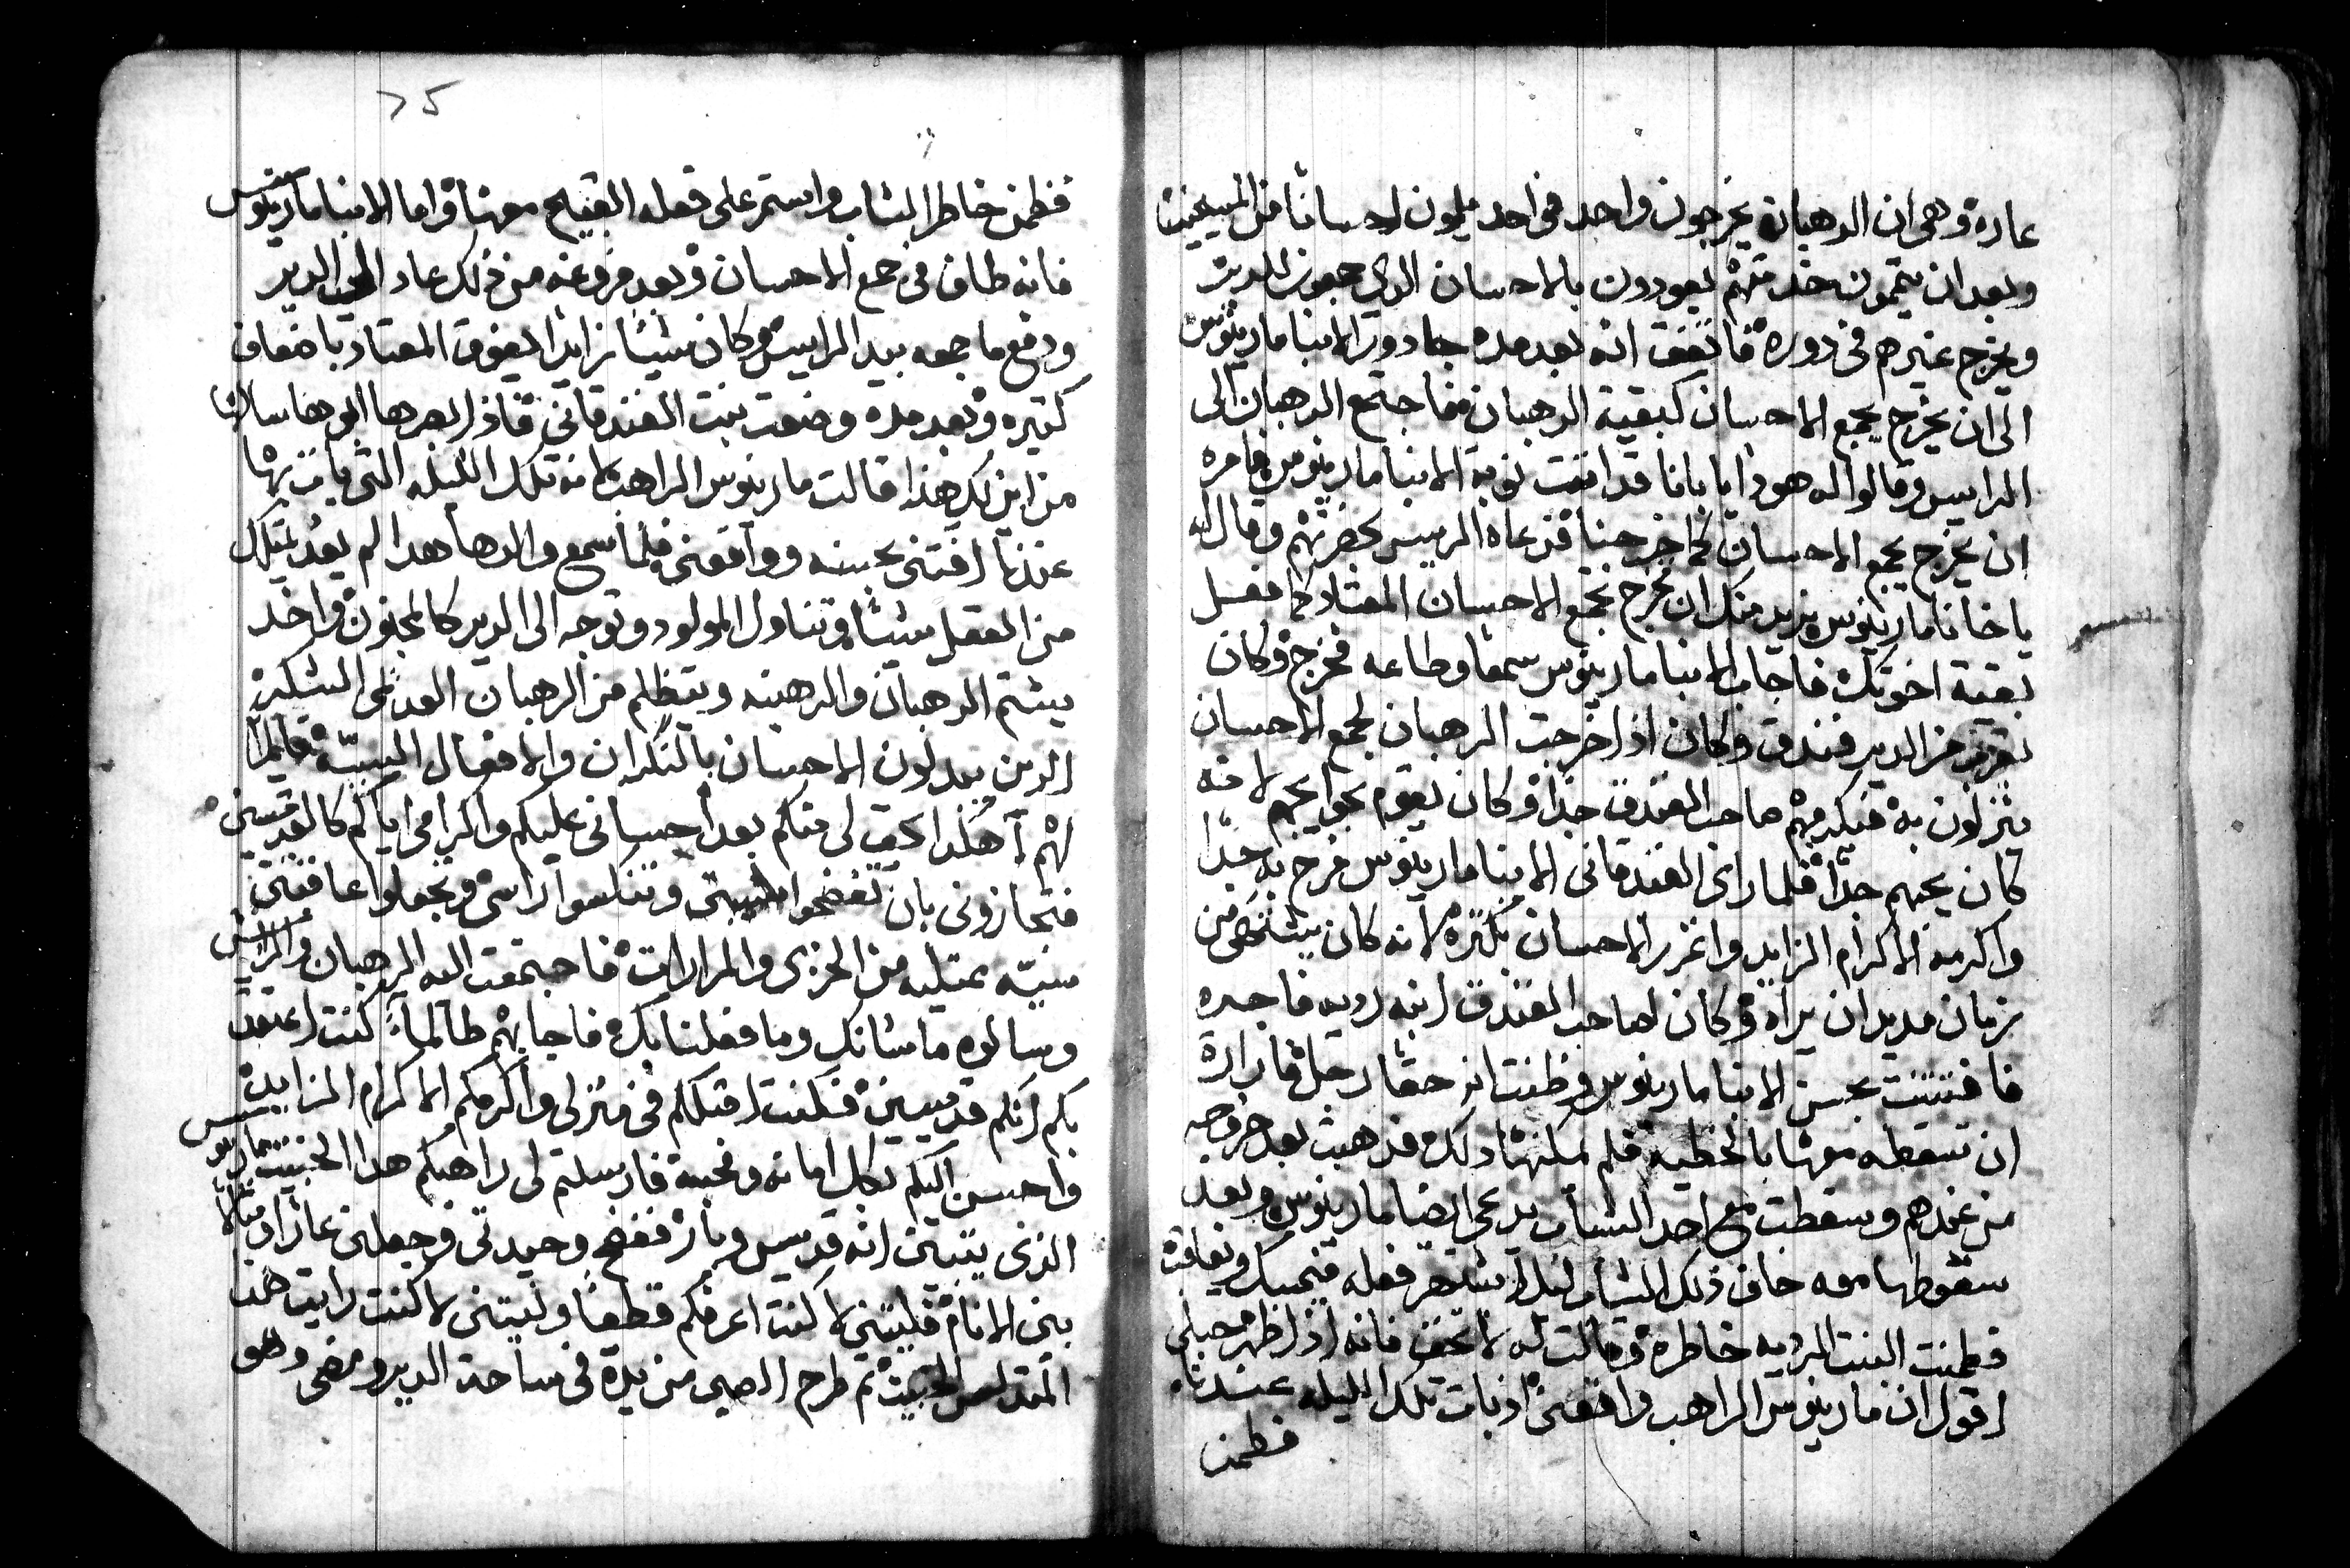 عادة وهي ان الرهبان يخرجون واحد فواحد يلمون احسانا من المسيحيين
وبعد ان يتممون خدمتهم يعودون بالاحسان الدي جمعوه للدير
ويخرج غيرهم في دوره فاتفق انه بعد مده جا دور الانبا مارينوس
الى ان يخرج يجمع الاحسان كبقية الرهبان فاجتمع الرهبان الى
الرايس وقالوا له هودا يابانا قد اتت نوبة الانبا مارينوس فامره
ان يخرج يجمع الاحسان كما خرجنا فدعاه الرييس بحضرتهم وقال له
ياخانا مارينوس نريد منك ان تخرج تجمع الاحسان المعتاد كما فعل
بقية اخوتك فاجاب الانبا مارينوس سمعا وطاعه فخرج وكان
بقرب من الدير فندق وكان اذا خرجت الرهبان لجمع الاحسان
ينزلون به فيكرمهم صاحب الفندق جدا وكان يقوم بحوايجهم لانه
كان يحبهم جدا فلما راى الفندقاني الانبا مارينوس فرح به جدا
واكرمه الاكرام الزايد واغزر الاحسان بكثرة لانه كان يشتهي من
زمان مديد ان يراه وكان لصاحب الفندق ابنه رديه فاجره
فافتتنت بحسن الانبا مارينوس وظنت انه حقا رجل فارادة
ان تسقطه معها بالخطيه فلم يمكنها دلك فدهبت بعد خروجه
من عندهم وسقطت مع احد الشباب يدعى ايضا مارينوس وبعد
سقوطها معه خاف ذلك الشاب ليلا يشتهر فعله فيمسك ويعاقب
فطمنت البنت الرديه خاطره وقالت له لا تخف فانه اذا ظهر حبلي
اقول ان مارينوس الراهب واقعني اذ بات تلك الليله عندنا
فطمن
٢٥
فطمن خاطر الشاب واستمر على فعله القبيح معها واما الانبا مارينوس
فانه طاف في جمع الاحسان وبعد فروغه من ذلك عاد الى الدير
ودفع ما جمعه بيد الرايس وكان شيئا زايدا يفوق المعتاد باضعاف
كتيره وبعد مده وضعت بنت الفندقاني فاذ ابصرها ابوها سالها
من اين لك هذا قالت مارينوس الراهب لانه تلك الليله التي بات بها
عندنا افتني بحسنه وواقعني فلما سمع والدها هدا لم يعد يمتلك
من العقل شيئا وتناول المولود وتوجه الى الدير كالمجنون واخد
يشتم الرهبان والرهبنه ويتظلم من الرهبان العدمى الشكر
الدين يبدلون الاحسان بالنكران والافعال السيه قايلا
لهم اهكدا يحق لي منكم بعد احساني عليكم واكرامي اياكم كالقديسين
فتجازوني بان تفضحوا شيبتي وتنكسوا راسي وتجعلوا عاقبتي
سيه ممتليه من الخزي والمرارات فاجتمعت اليه الرهبان والرايس
وسالوه ما شانك وما فعلنا بك فاجابهم طالما كنت اعتقد
بكم انكم قديسين فكنت اقبلكم في منزلي واكرمكم الاكرام الزايد
واحسن اليكم بكل امانه ومحبة فارسلتم لي راهبكم هدا الخبيث مارينوس
الذي يتبين انه قديس وبار ففضح وحيدتي وجعلني عارا ومثالا
بين الانام فليتني لا كنت اعرفكم قطعا وليتني لا كنت رايت هدا
المتدلس الخبيث ثم طرح الصبي من يده في ساحة الدير ومضى وهو